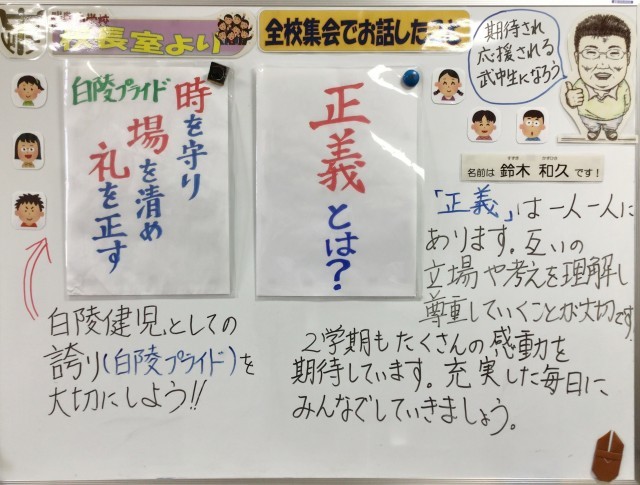 校長室より
全校集会でお話したこと
期待され
応援される
武中生になろう
名前は 鈴木 和久 です!
白陵プライド
時を守り
場を清め
礼を正す
正義とは?
「正義」は一人一人に
あります。互いの
立場や考えを理解し
尊重していくことが大切です
白陵健児としての
誇り(白陵プライド)を
大切にしよう!!
2学期もたくさんの感動を
期待しています。充実した毎日に
みんなでしていきましょう。